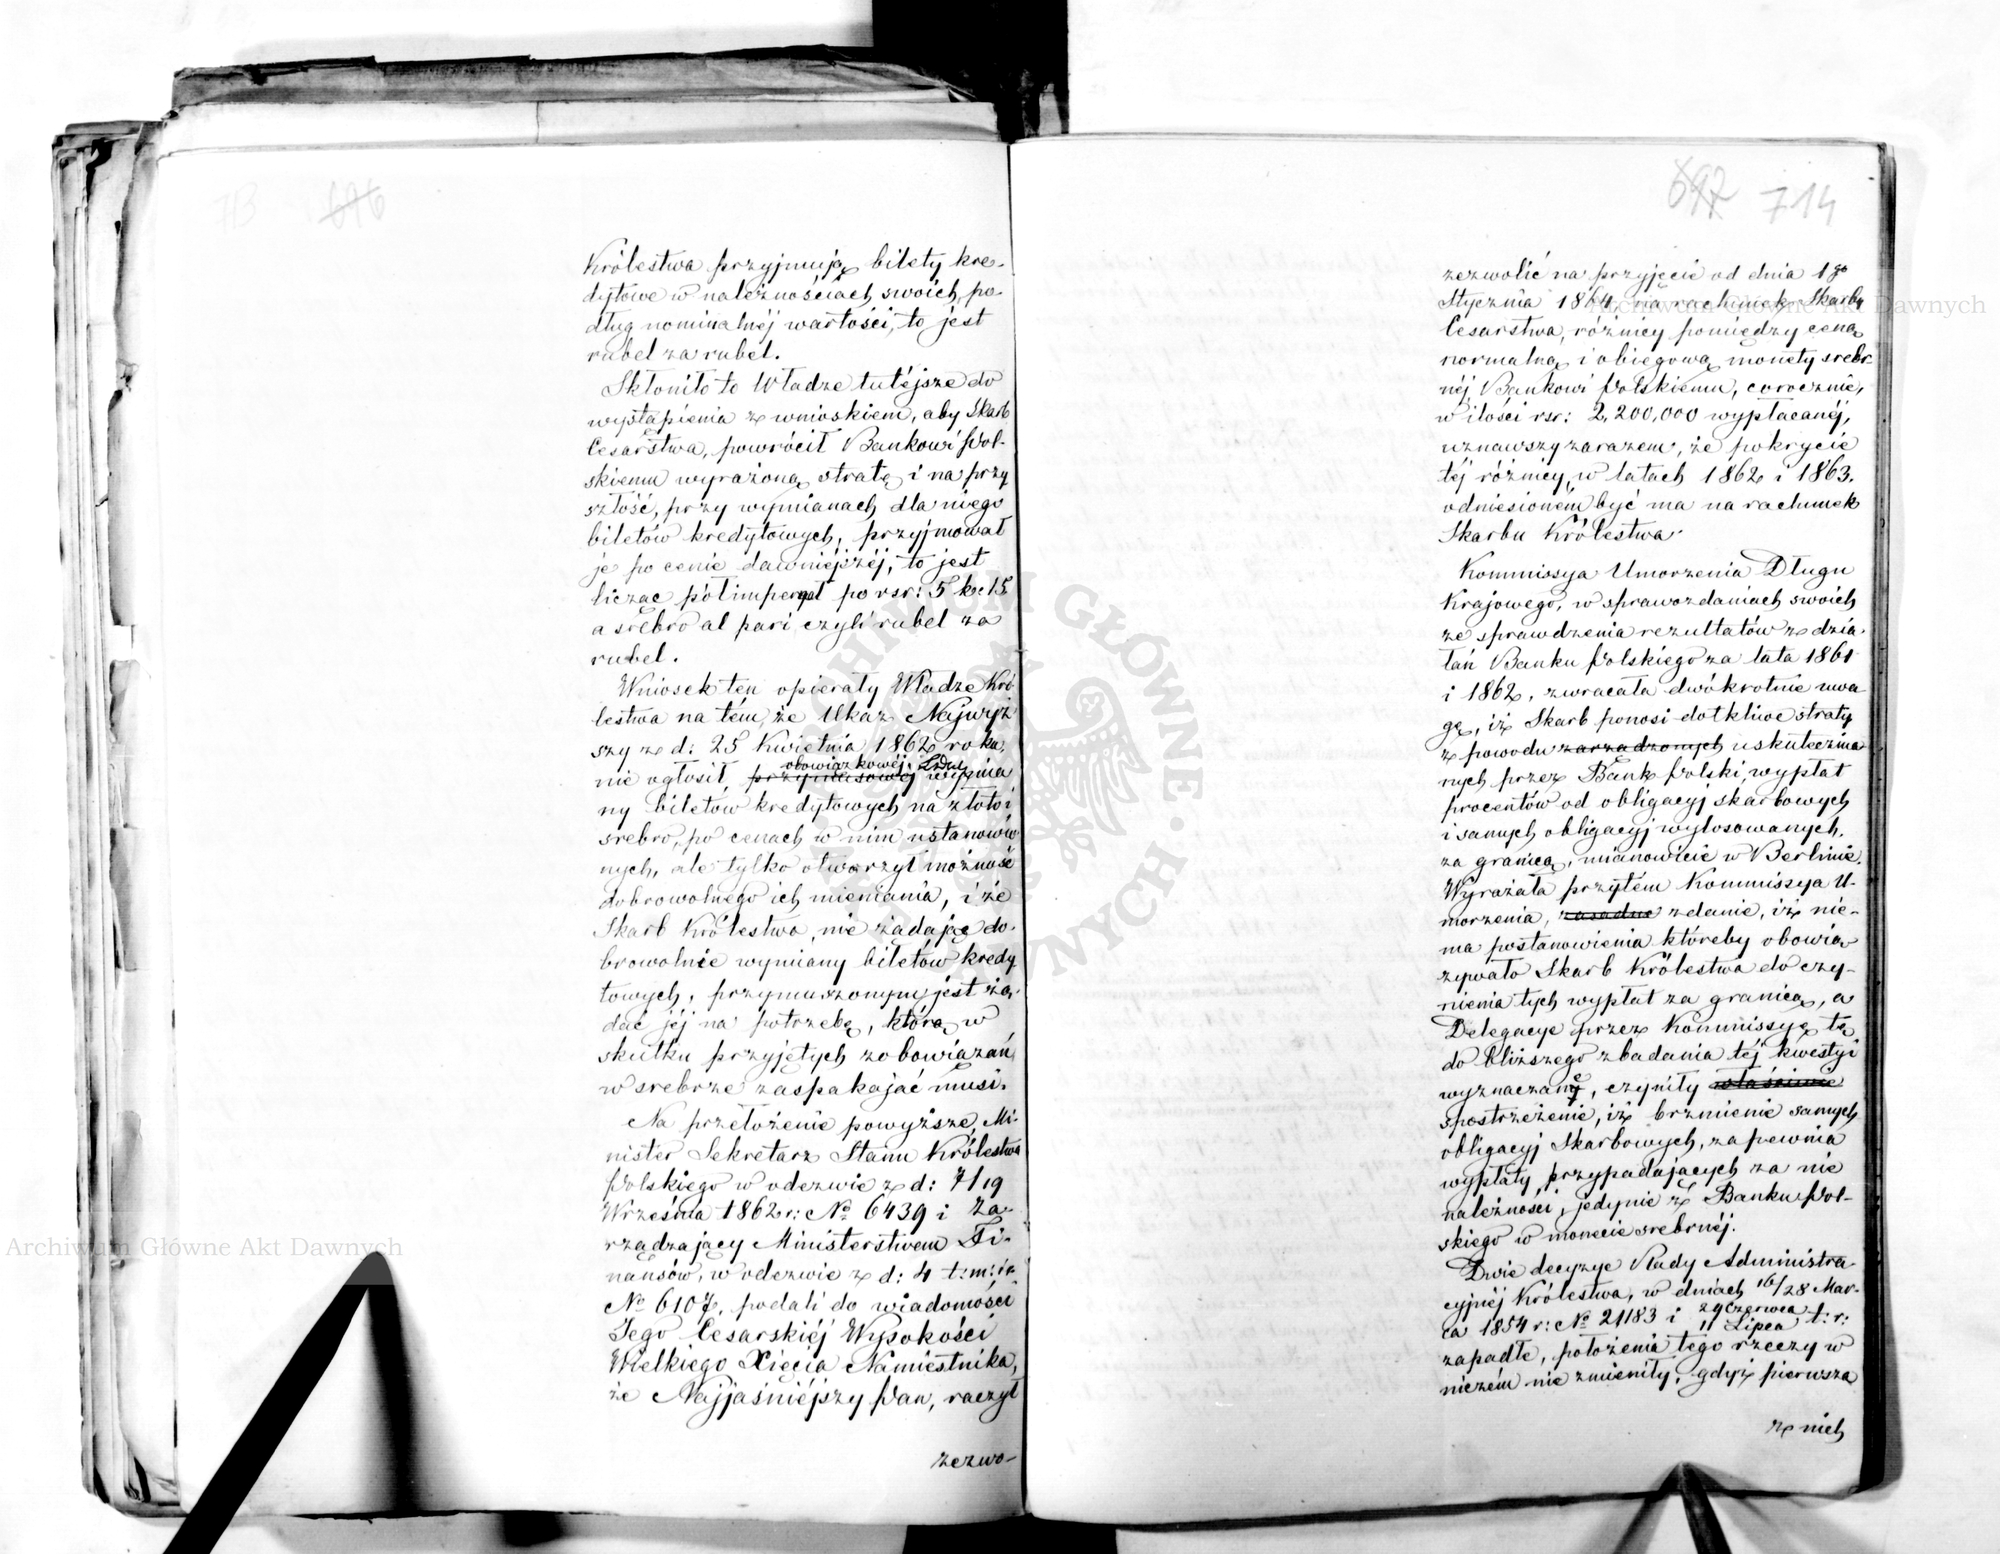 713 676
Królestwa przyjmują bilety kre-
dytowe w należnościach swoich, po-
dług nominalnéj wartości, to jest
rubel za rubel.
Skłoniło to Władze tutéjsze do
wystąpienia z wnioskiem, aby Skarb
Cesarstwa, powrócił Bankowi Pol-
skiemu wyrażoną stratę i na przy
szłość, przy wymianach dla niego
biletów kredytowych, przyjmował
je po cenie dawniéjszéj, to jest
licząc półimperyał po rsr: 5 k. 15
a srebro al pari czyli rubel za
rubel.
Wniosek ten opierały Władze Kró-
lestwa na tém, że Ukaz Najwyż
szy z d: 25 Kwietnia 1862 roku,
obowiązkowéj
nie ogłosił, przymusowéj wymia
ny biletów kredytowych na złoto i
srebro, po cenach w nim ustanowio
nych, ale tylko otworzył możność
dobrowolnego ich mieniania, i że
Skarb Królestwa, nie żądając do-
browolnie wymiany biletów kredy
towych, przymuszonym jest żą-
dać jéj na potrzebę, którą w
skutku przyjętych zobowiązań,
w srebrze zaspakajać musi.
Na przełożenie powyższe, Mi-
nister Sekretarz Stanu Królestwa
Polskiego w odezwie z d: 7/19
Września 1862 r: No 6439 i Za-
rządzający Ministerstwem Fi-
nansów, w odezwie z d: 4 t: m: i r.
No 6107, podali do wiadomości
Jego Cesarskiéj Wysokości
Wielkiego Xięcia Namiestnika,
że Najjaśniéjszy Pan, raczył
zezwo-
692 714
zezwolić na przyjęcie od dnia 1go
Stycznia 1864, na rachunek Skarbu
Cesarstwa, różnicy pomiędzy ceną
normalną i obiegową monety srebr-
néj Bankowi Polskiemu, corocznie,
w ilości rsr: 2,200,000 wypłacanéj,
uznawszy zarazem, że pokrycie
téj różnicy, w latach 1862 i 1863.
odniesioném być ma na rachunek
Skarbu Królestwa.
Kommissya Umorzenia Długu
Krajowego, w sprawozdaniach swoich
ze sprawdzenia rezultatów z dzia-
łań Banku Polskiego za lata 1861
i 1862, zwracała dwókrotnie uwa
gę, iż Skarb ponosi dotkliwe straty
z powodu zarządzonych uskutecznia
nych przez Bank Polski, wypłat
procentów od obligacyj skarbowych
i samych obligacyj wylosowanych,
za granicą, mianowicie w Berlinie.
Wyrażała przytém Kommissya U-
morzenia, zasadne zdanie, iż nie-
ma postanowienia któreby obowią
zywało Skarb Królestwa do czy-
nienia tych wypłat za granicą, a
Delegacye przez Kommissyę tę
do bliższego zbadania téj kwestyi
wyznaczane, czyniły właściwie
spostrzeżenie, iż brzmienie samych
obligacyj Skarbowych, zapewnia
wypłaty, przypadających za nie
należności, jedynie z Banku Pol-
skiego w monecie srebrnéj.
Dwie decyzye Rady Administra
cyjnéj Królestwa, w dniach 16/28 Mar-
ca 1854 r: No 21183 i 29 Czerwca/11 Lipca t: r:
zapadłe, położenia tego rzeczy w
niczém nie zmieniły, gdyż pierwsza
z nich
Archiwum Główne Akt Dawnych
Archiwum Główne Akt Dawnych